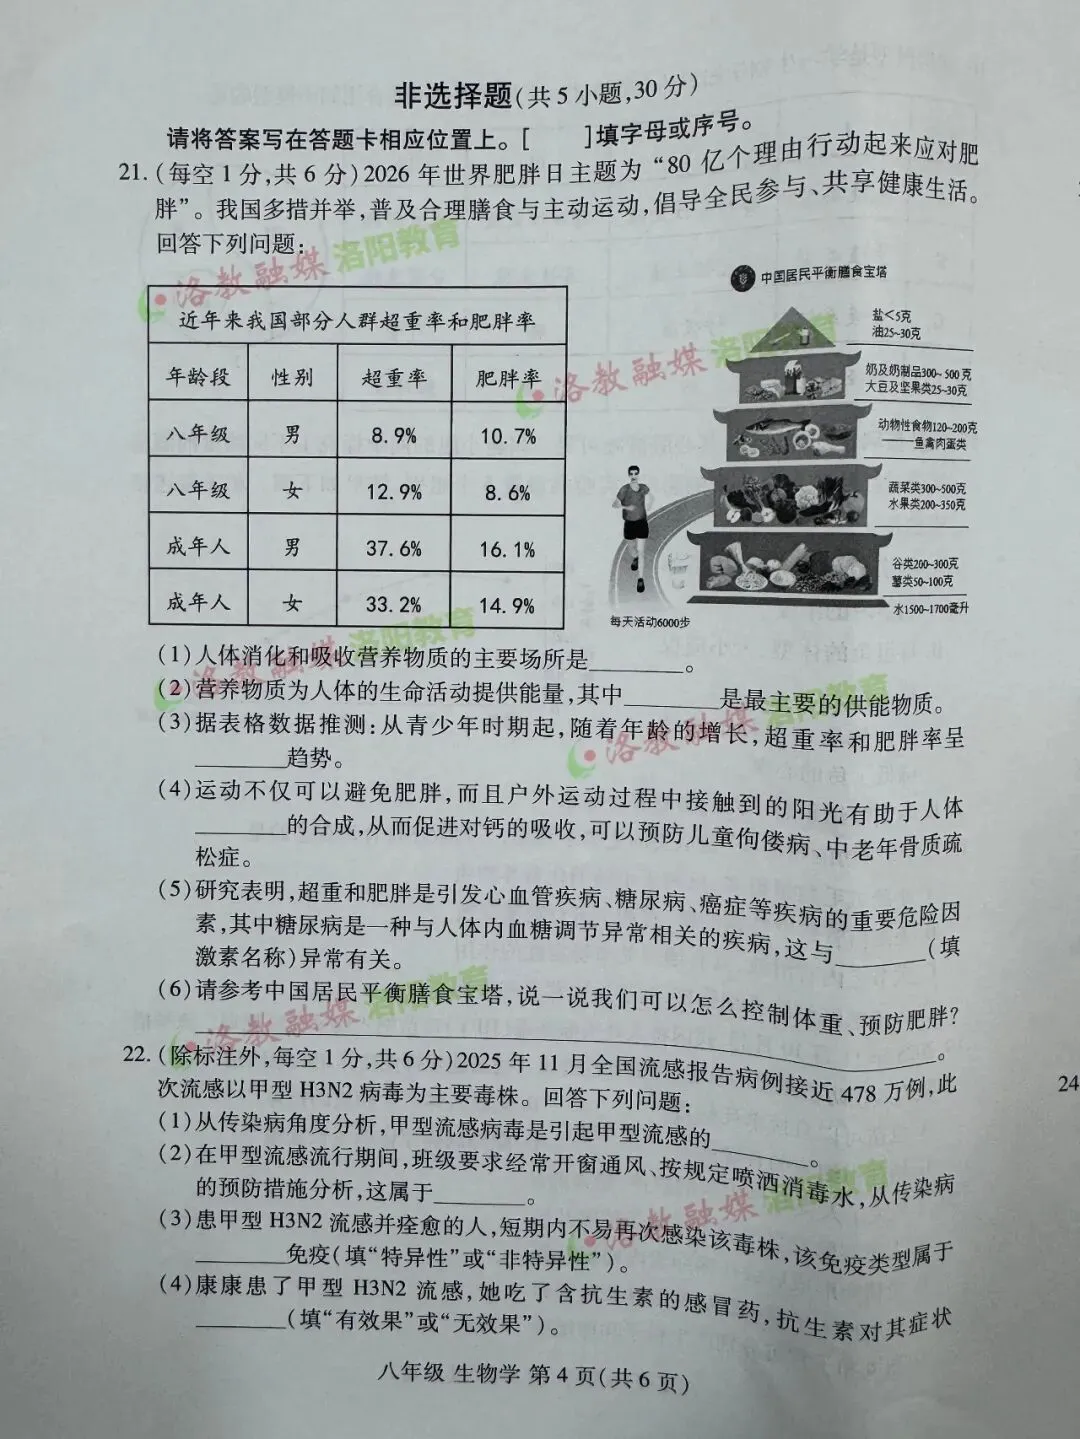 非选择题(共5小题,30分)
请将答案写在答题卡相应位置上。[ ]填字母或序号。
21.(每空1分,共6分)2026年世界肥胖日主题为“80亿个理由行动起来应对肥
胖”。我国多措并举,普及合理膳食与主动运动,倡导全民参与、共享健康生活。
回答下列问题:
洛教融媒 洛阳教育
近年来我国部分人群超重率和肥胖率
年龄段 性别 超重率 肥胖率
八年级 男 8.9% 10.7%
八年级 女 12.9% 8.6%
成年人 男 37.6% 16.1%
成年人 女 33.2% 14.9%
中国居民平衡膳食宝塔
盐<5克
油25~30克
奶及奶制品300~500克
大豆及坚果类25~30克
动物性食物120~200克
——鱼禽肉蛋类
蔬菜类300~500克
水果类200~350克
谷类200~300克
薯类50~100克
水1500~1700毫升
每天活动6000步
洛教融媒 洛阳教育
(1)人体消化和吸收营养物质的主要场所是________。
(2)营养物质为人体的生命活动提供能量,其中________是最主要的供能物质。
(3)据表格数据推测:从青少年时期起,随着年龄的增长,超重率和肥胖率呈
________趋势。
(4)运动不仅可以避免肥胖,而且户外运动过程中接触到的阳光有助于人体
________的合成,从而促进对钙的吸收,可以预防儿童佝偻病、中老年骨质疏
松症。
(5)研究表明,超重和肥胖是引发心血管疾病、糖尿病、癌症等疾病的重要危险因
素,其中糖尿病是一种与人体内血糖调节异常相关的疾病,这与________(填
激素名称)异常有关。
(6)请参考中国居民平衡膳食宝塔,说一说我们可以怎么控制体重、预防肥胖?
________________________________。
22.(除标注外,每空1分,共6分)2025年11月全国流感报告病例接近478万例,此
次流感以甲型H3N2病毒为主要毒株。回答下列问题:
(1)从传染病角度分析,甲型流感病毒是引起甲型流感的________。
(2)在甲型流感流行期间,班级要求经常开窗通风、按规定喷洒消毒水,从传染病
的预防措施分析,这属于________。
(3)患甲型H3N2流感并痊愈的人,短期内不易再次感染该毒株,该免疫类型属于
________免疫(填“特异性”或“非特异性”)。
(4)康康患了甲型H3N2流感,她吃了含抗生素的感冒药,抗生素对其症状
________(填“有效果”或“无效果”)。
八年级 生物学 第4页(共6页)
24